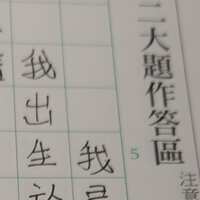 二大題作答區
注意
5
我
我出生於